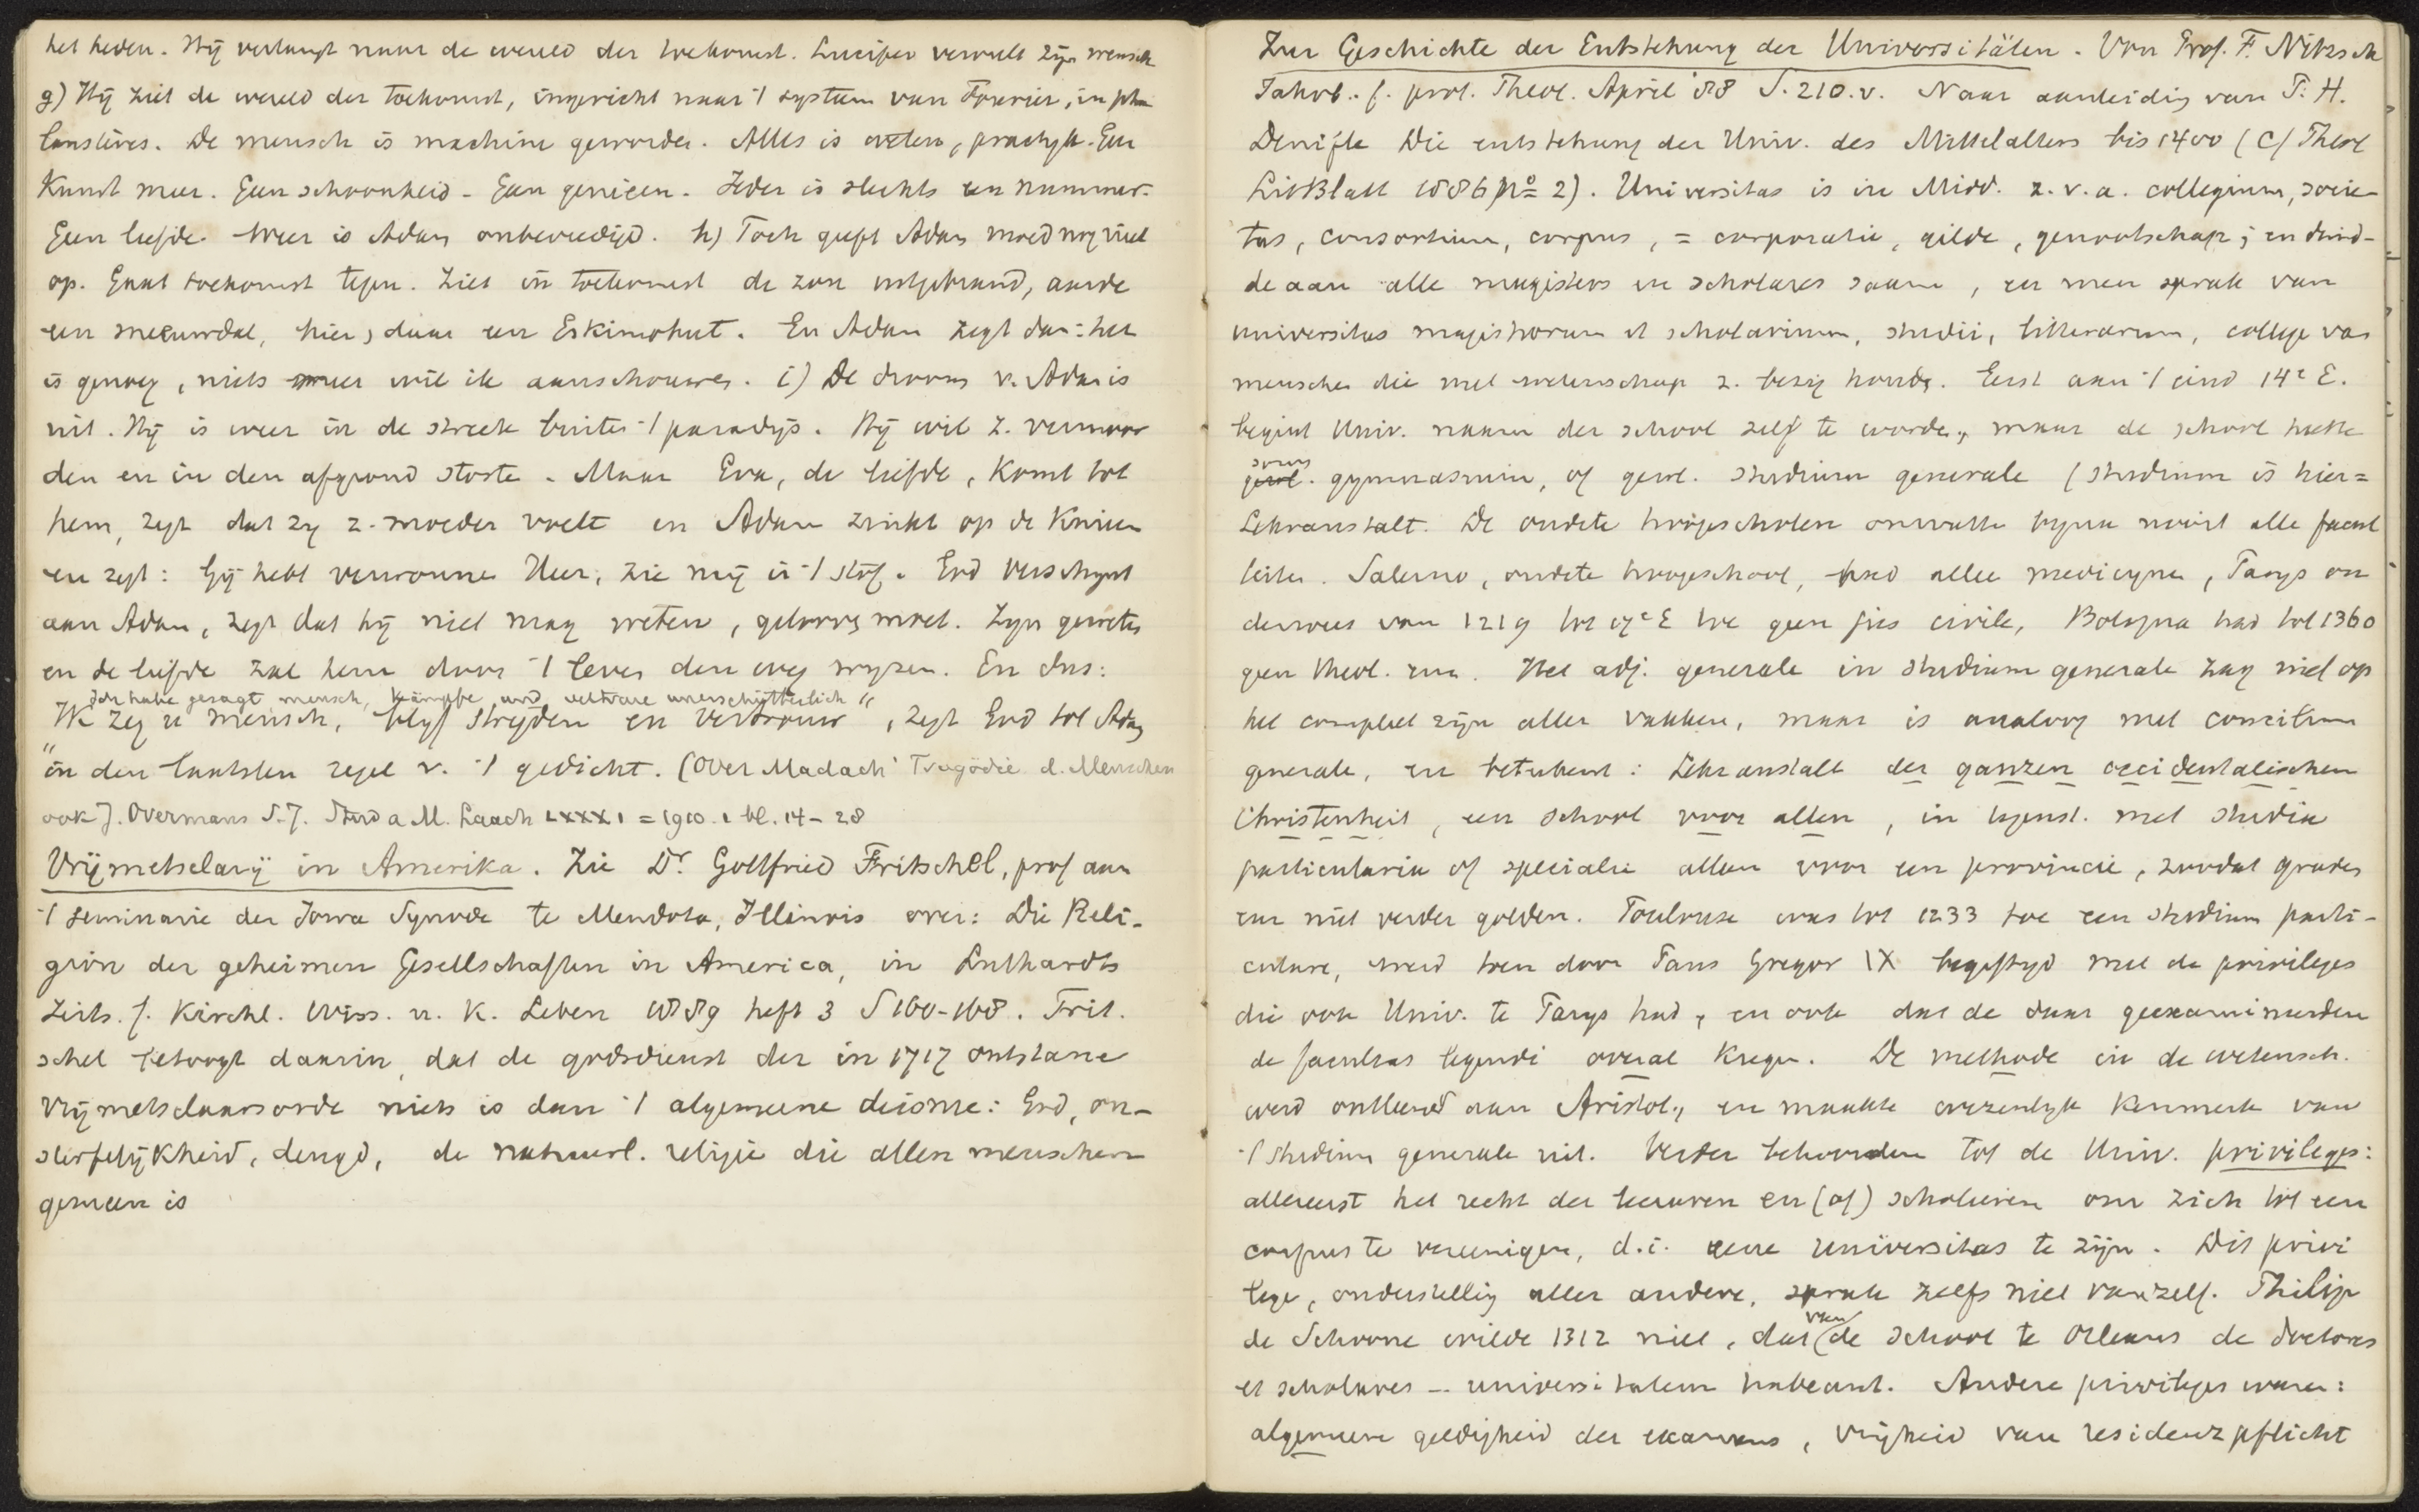 het heden. Hij verlangt naar de wereld der toekomst. Lucifer vervult zijn wensch
g) Hij ziet de wereld der toekomst, ingericht naar 't systeem van Fourier, in pha
lanstères. De mensch is machine geworden. Alles is weten, practyk. Gen
Kunst meer. Geen schoonheid. Geen genieën. Ieder is slechts een nummer.
Geen liefde. Weer is Adam onbevredigd. h) Toch geeft Adam moed nog niet
op. Gaat toekomst tegen. Ziet in toekomst de zon uitgebrand, aarde
een sneeuwdal, hier, daar een Eskimohut. En Adam zegt dan: het
is genoeg, niets meer wil ik aanschouwen. i) De droom v. Adam is
uit. Hij is weer in de streek buiten 't paradijs. Hij wil z. vermoor
den en in den afgrond storte. Maar Eva, de liefde, komt tot
hem, zegt dat zy z. moeder voelt en Adam zinkt op de Knieen
en zegt: Gij hebt verwonnen Heer, zie mij in 't stof. God verschynt
aan Adam, zegt dat hij niet mag weten, gelooven moet. Zyn geweten
en de liefde zal hem door 't leven den weg wyzen. En dus:
Ich habe gesagt mensch, kämpfe und vertraue unerschütterlich "
Ik zeg u mensch, blyf stryden en vertrouw, zegt God tot Adam
" in den laatsten regel v. 't gedicht. (Over Madach' Tragödie d. Menschen
ook J. Overmans S.J. Stud a M. Laach LXXXI = 1910. 1 bl. 14 - 28
Vrijmetselarij in Amerika. Zie Dr. Gottfried Fritschel, prof aan
't seminarie der Iowa Synode te Mendota, Illinois over: Die Reli-
gion der geheimen Gesellschaften in America, in Luthardts
Zeits. f. Kirchl. Wiss. u. K. Leben 1889 heft 3 S 160-168. Frit.
schel betoogt daarin, dat de godsdienst der in 1717 ontstane
vrijmetselaarsorde niets is dan 't algemeene deisme: God, on-
sterfelijkheid, deugd, de natuurl. religie die allen menschen
gemeen is
Zur Geschichte der Entstehung der Universitäten. Von Prof. F. Nitzsch
Jahrb. f. prot. Theol. April '88 S. 210.v. Naar aanleiding van P. H.
Denifle Die entstehung der Univ. des Mittelalters bis 1400 (Cf Theol
LitBlatt 1886 No 2). Universitas is in Midd. z.v.a. collegium, socie-
tas, consortium, corpus, = corporatie, gilde, genootschap; en duid-
de aan alle magisters en scholares saam, en men sprak van
universitas magistrorum et scholarium, studii, litterarum, college van
menschen die met wetenschap z. bezig houdn. Eerst aan 't eind 14e E.
begint Univ. naam der school zelf te worden, maar de school heette
soms
gewl. gymnasium, of gewl. studium generale (studium is hier =
Lehranstalt. De oudste hoogescholen omvatte byna nooit alle facul
teiten. Salerno, oudste hoogeschool, had alleen medicynen, Parys on
derwees van 1219 tot 17e E toe geen jus civile, Bologna had tot 1360
geen theol. enz. Het adj. generale in studium generale zag niet op
het compleet zijn aller vakken, maar is analoog met concilium
generale, en beteekent: Lehranstalt der ganzen occidentalischen
Christenheit, een school voor allen, in tegenst. met studia
particularia of specialia alleen voor een provincie, zoodat graden
enz niet verder golden. Toulouse was tot 1233 toe een studium parti-
culare, werd toen door Paus Gregor IX begiftigd met de privileges
die ook Univ. te Parys had, en ook dat de daar geexamineerden
de facultas legendi overal kregen. De methode in de wetensch.
werd ontleend aan Aristot., en maakte wezenlyk kenmerk van
't studium generale uit. Verder behoorden tot de Univ. privileges:
allereerst het recht der leeraren en (of) scholieren om zich tot een
corpus te vereenigen, d.i. eene universitas te zijn. Dit privi
lege, onderstelling aller andere, sprak zelfs niet vanzelf. Philip
de Schoone wilde 1312 niet, dat (van de school te Orleans de doctores
et scholares - universitatem habeant. Andere privileges waren:
algemeene geldigheid der examens, vrijheid van residenzpflicht